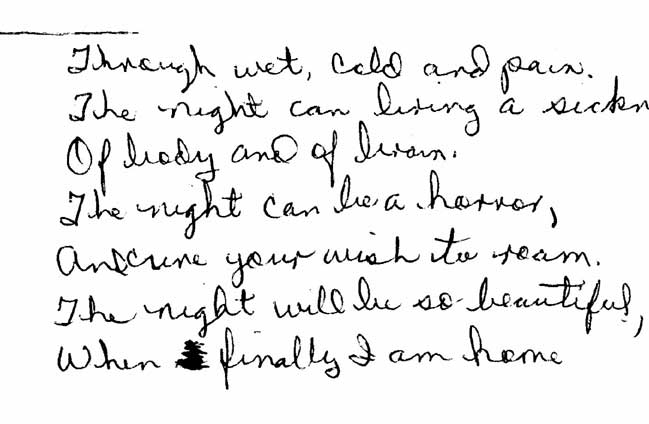 Through wet, cold and pain.
The night can bring a sickn
Of body and of brain.
The night can be a horror,
And cure your wish to roam.
The night will be so beautiful,
When finally I am home